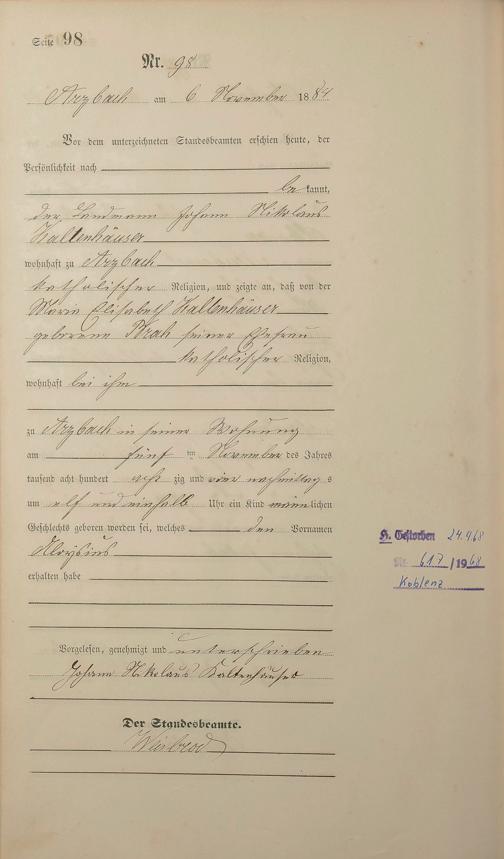 Seite 98
Nr. 98
Arzbach am 6 November 1884
Vor dem unterzeichneten Standesbeamten erschien heute, der
Persönlichkeit nach
be kannt,
der Landmann Johann Nikolaus
Kaltenhäuser
wohnhaft zu Arzbach
katholischer Religion, und zeigte an, daß von der
Maria Elisabeth Kaltenhäuser
geborene seiner Ehefrau
katholischer Religion,
wohnhaft bei ihm
zu Arzbach in seiner Wohnung
am fünf ten November des Jahres
tausend acht hundert acht zig und vier nachmittag s
um elf und einhalb Uhr ein Kind männlichen
Geschlechts geboren worden sei, welches den Vornamen
Aloysius
erhalten habe
Vorgelesen, genehmigt und unterschrieben
Johann Nikolaus Kaltenhäuser
Der Standesbeamte.
Gestorben 24.9.68
Nr. 617/1968
Koblenz